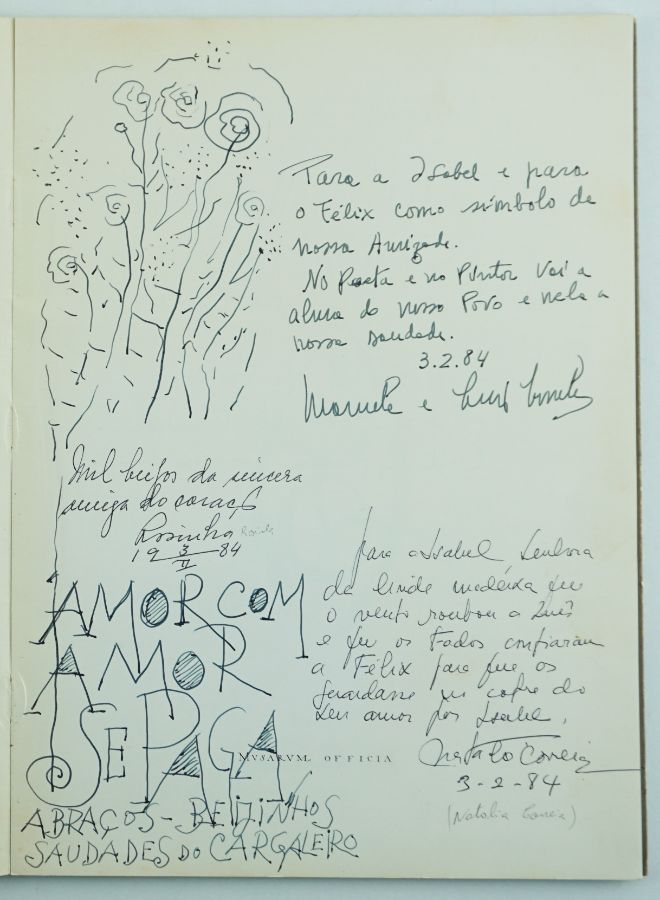 Para a Isabel e para
o Félix como símbolo de
nossa Amizade.
No Poeta e no Pintor vai a
alma do nosso Povo e nela a
nossa saudade.
3.2.84
Manuela e
Mil beijos da sincera
amiga do coraçã
Rosinha
19 3/II 84
para a Isabel Senhora
da linda madeixa que
o vento roubou a Inês
e que os Fados confiaram
a Félix para que os
guardasse no cofre do
seu amor por Isabel.
Natália Correia
3-2-84
(Natália Correia)
AMOR COM
AMOR
SE PAGA
MVSARVM OFFICIA
ABRAÇOS - BEIJINHOS
SAUDADES DO CARGALEIRO